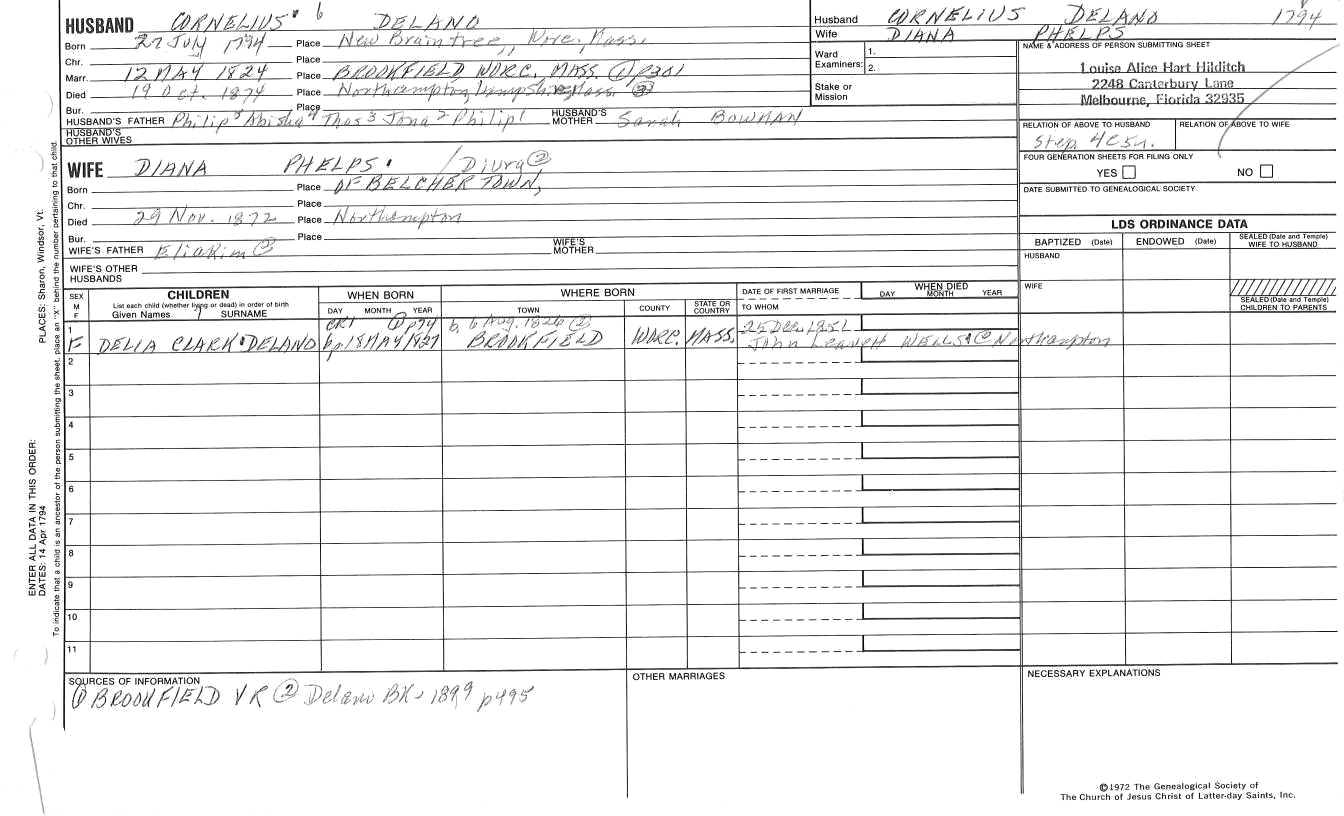 HUSBAND CORNELIUS 6 DELANO
Born 27 July 1794 Place New Braintree, Worc. Mass.
Chr. Place
Marr. 12 MAY 1824 Place BROOKFIELD WORC. MASS. ① p301
Died 19 Oct. 1874 Place Northampton, Hampshire, Mass. ②
Bur. Place
HUSBAND'S FATHER Philip 5 Abisha 4 Thos 3 Jona 2 Philip 1 HUSBAND'S MOTHER Sarah BOWMAN
HUSBAND'S OTHER WIVES
WIFE DIANA PHELPS. / ②
Born Place OF BELCHERTOWN,
Chr. Place
Died 29 Nov. 1872 Place Northampton
Bur. Place
WIFE'S FATHER Eliakim ② WIFE'S MOTHER
WIFE'S OTHER HUSBANDS
Husband CORNELIUS DELANO 1794
Wife DIANA PHELPS
Ward Examiners: 1. 2.
Stake or Mission
NAME & ADDRESS OF PERSON SUBMITTING SHEET
Louise Alice Hart Hilditch
2248 Canterbury Lane
Melbourne, Florida 32935
RELATION OF ABOVE TO HUSBAND RELATION OF ABOVE TO WIFE
Step 4C5n.
FOUR GENERATION SHEETS FOR FILING ONLY
YES NO
DATE SUBMITTED TO GENEALOGICAL SOCIETY
LDS ORDINANCE DATA
BAPTIZED (Date) ENDOWED (Date) SEALED (Date and Temple) WIFE TO HUSBAND
HUSBAND
WIFE
SEALED (Date and Temple) CHILDREN TO PARENTS
SEX M F
CHILDREN
List each child (whether living or dead) in order of birth
Given Names SURNAME
WHEN BORN
DAY MONTH YEAR
WHERE BORN
TOWN COUNTY STATE OR COUNTRY
DATE OF FIRST MARRIAGE
TO WHOM
WHEN DIED
DAY MONTH YEAR
1 CR1 ① p74 b. 6 Aug. 1826 ② 25 Dec. 1851
F DELIA CLARK DELANO bp 18 MAY 1827 BROOKFIELD WORC. MASS. John WELLS ② Northampton
2
3
4
5
6
7
8
9
10
11
SOURCES OF INFORMATION
① BROOKFIELD VR ② Delano BK. 1899 p495
OTHER MARRIAGES
NECESSARY EXPLANATIONS
©1972 The Genealogical Society of
The Church of Jesus Christ of Latter-day Saints, Inc.
ENTER ALL DATA IN THIS ORDER:
DATES: 14 Apr 1794
PLACES: Sharon, Windsor, Vt.
To indicate that a child is an ancestor of the person submitting the sheet, place an "X" behind the number pertaining to that child.